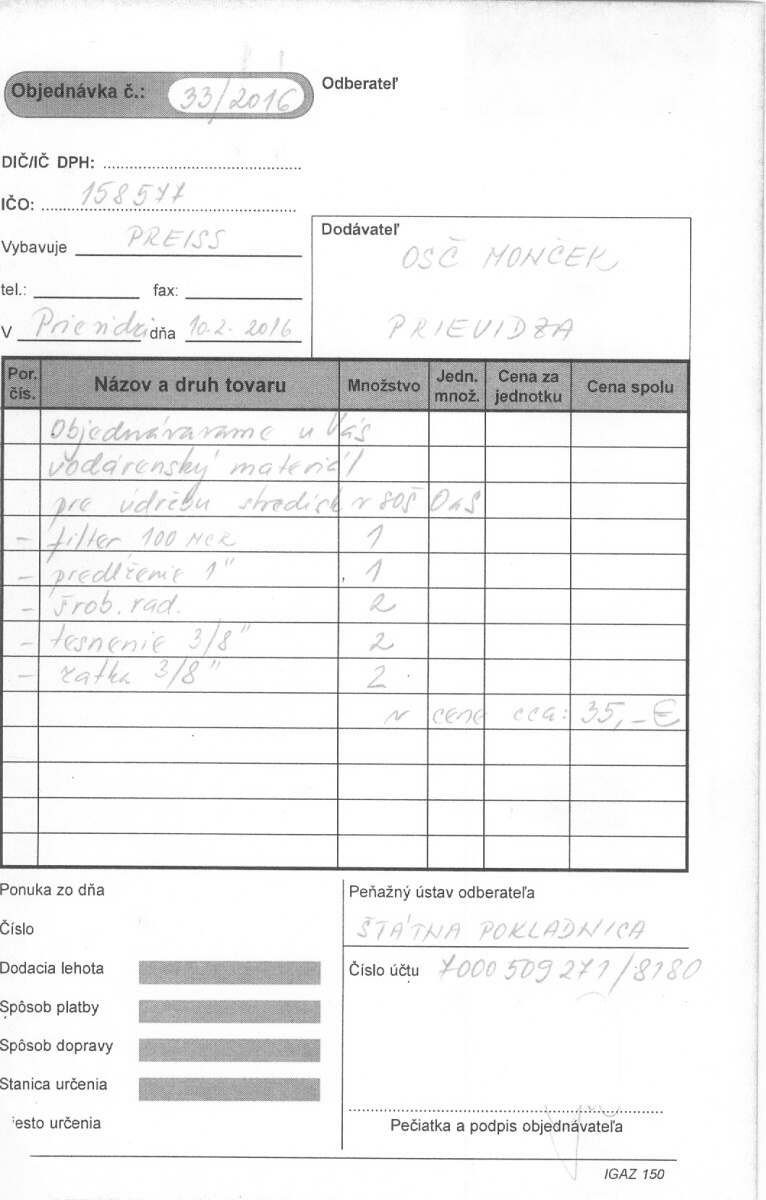 Objednávka č.: 33/2016
Odberateľ
DIČ/IČ DPH:
IČO: 158577
Vybavuje PREISS
Dodávateľ
OSČ MONČEK
PRIEVIDZA
tel.: fax:
V Prievidzi dňa 10.2.2016
Por. čís. Názov a druh tovaru Množstvo Jedn. množ. Cena za jednotku Cena spolu
Objednávavame u Vás
vodárenský materiál
pre údržbu stredísk v SOŠ OaS
- filter 100 MCR 1
- predlženie 1" 1
- šrob. rad. 2
- tesnenie 3/8" 2
- zatka 3/8" 2
v cene cca: 35,- €
Ponuka zo dňa
Číslo
Dodacia lehota
Spôsob platby
Spôsob dopravy
Stanica určenia
iesto určenia
Peňažný ústav odberateľa
ŠTÁTNA POKLADNICA
Číslo účtu 7000509271/8180
Pečiatka a podpis objednávateľa
IGAZ 150